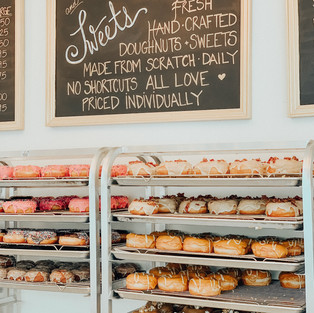 and
Sweets
FRESH
HAND-CRAFTED
DOUGHNUTS • SWEETS
MADE FROM SCRATCH • DAILY
NO SHORTCUTS ALL LOVE ♥
PRICED INDIVIDUALLY